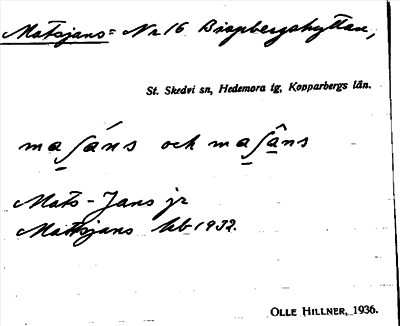 Matsjans = Nr 16 Bispbergshyttan,
St. Skedvi sn, Hedemora tg, Kopparbergs län.
maʃáns och maʃâns
Mats-Jans jr
Mattsjans hb 1932.
OLLE HILLNER, 1936.